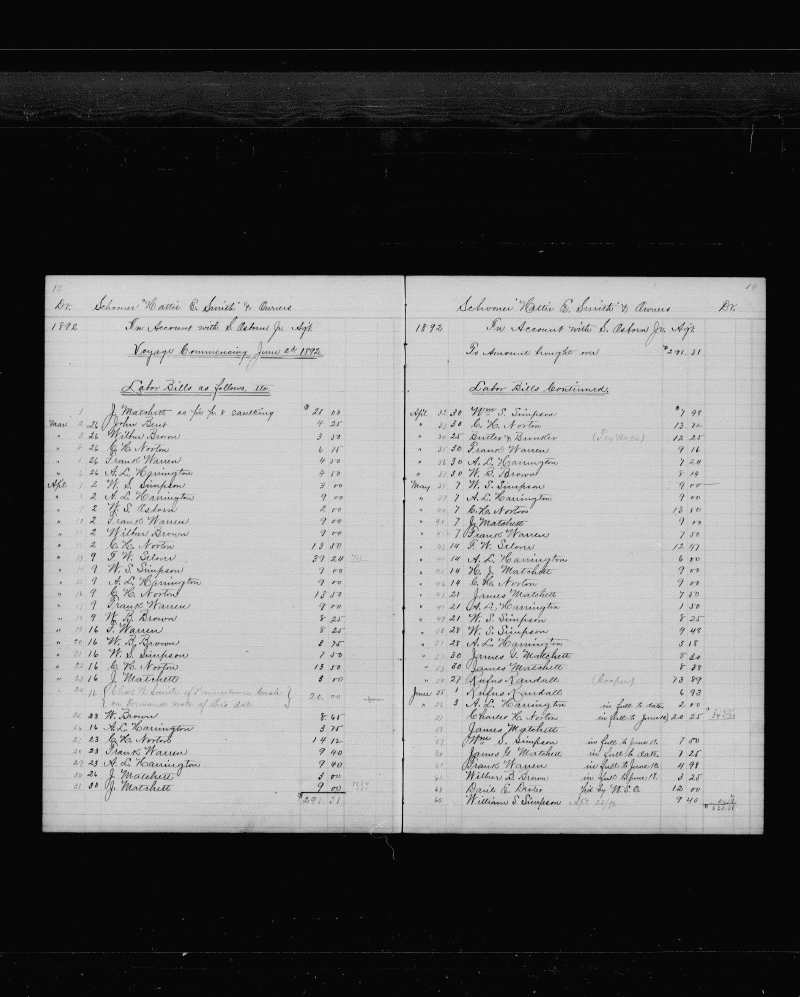 Dr. Schooner "Hattie E. Smith" & Owners
1892 In Account with S. Osborn Jr. Agt
Voyage Commencing June 2th 1892.
Labor Bills as follows.
1 J. Matchett as per p. & caulking $21 00
Mar 2 26 John Bent 4 25
" 3 26 Wilbur Brown 3 50
" 4 26 C. H. Norton 6 75
" 5 26 Frank Warren 4 50
" 6 26 A. L. Harrington 4 50
Apl. 7 2 W. S. Simpson 3 00
" 8 2 A. L. Harrington 9 00
" 9 2 W. S. Osborn 2 00
" 10 2 Frank Warren 9 00
" 11 2 Wilbur Brown 9 00
" 12 2 C. H. Norton 13 50
" 13 9 F. W. Silova 39 24
" 14 9 W. S. Simpson 9 00
" 15 9 A. L. Harrington 9 00
" 16 9 C. H. Norton 13 50
" 17 9 Frank Warren 9 00
" 18 9 W. B. Brown 8 25
" 19 16 F. Warren 8 25
" 20 16 W. B. Brown 3 75
" 21 16 W. S. Simpson 7 50
" 22 16 C. H. Norton 13 50
" 23 16 J. Matchett 3 00
" 24 16 Chas. H. Smith of Provincetown Cash 20 00
on Demand note of this date
23 W. Brown 8 65
16 A. L. Harrington 3 75
23 C. H. Norton 14 12
28 23 Frank Warren 9 40
29 23 A. L. Harrington 9 40
30 26 J. Matchett 3 00
31 30 J. Matchett 9 00
$291.31
19
Schooner "Hattie E. Smith" & Owners Dr.
1892 In Account with S. Osborn Jr. Agt
To Amount brought over $291.31
Labor Bills Continued.
Apl. 32 30 Wm. S. Simpson $7 98
" 33 30 C. H. Norton 13 72
" 34 25 Butler & Bunker 12 25
" 35 30 Frank Warren 9 16
" 36 30 A. L. Harrington 7 24
" 37 30 W. B. Brown 8 14
May 38 7 W. S. Simpson 9 00
" 39 7 A. L. Harrington 9 00
" 40 7 C. H. Norton 13 50
" 41 7 J. Matchett 9 00
" 7 Frank Warren 1 50
" 14 F. W. Silova 12 47
" 14 A. L. Harrington 6 00
" 14 H. J. Matchett 9 00
" 14 C. H. Norton 9 00
" 21 James Matchett 7 50
" 21 A. L. Harrington 1 50
" 21 W. S. Simpson 8 25
" 28 W. S. Simpson 9 48
" 28 A. L. Harrington 5 18
" 30 James G. Matchett 8 30
" 30 James Matchett 8 38
" 27 Rufus Randall Cooper 73 89
June 1 Rufus Randall 6 93
" 3 A. L. Harrington in full to date 2 00
Charles H. Norton in full to June 18 20 25
James Matchett
Wm. S. Simpson in full to June 11. 7 50
James G. Matchett in full to date 1 25
Frank Warren in full to June 10. 4 98
Wilbur B. Brown in full to June 18. 3 25
Pd by W. S. O. 12 00
William S. Simpson 9 40